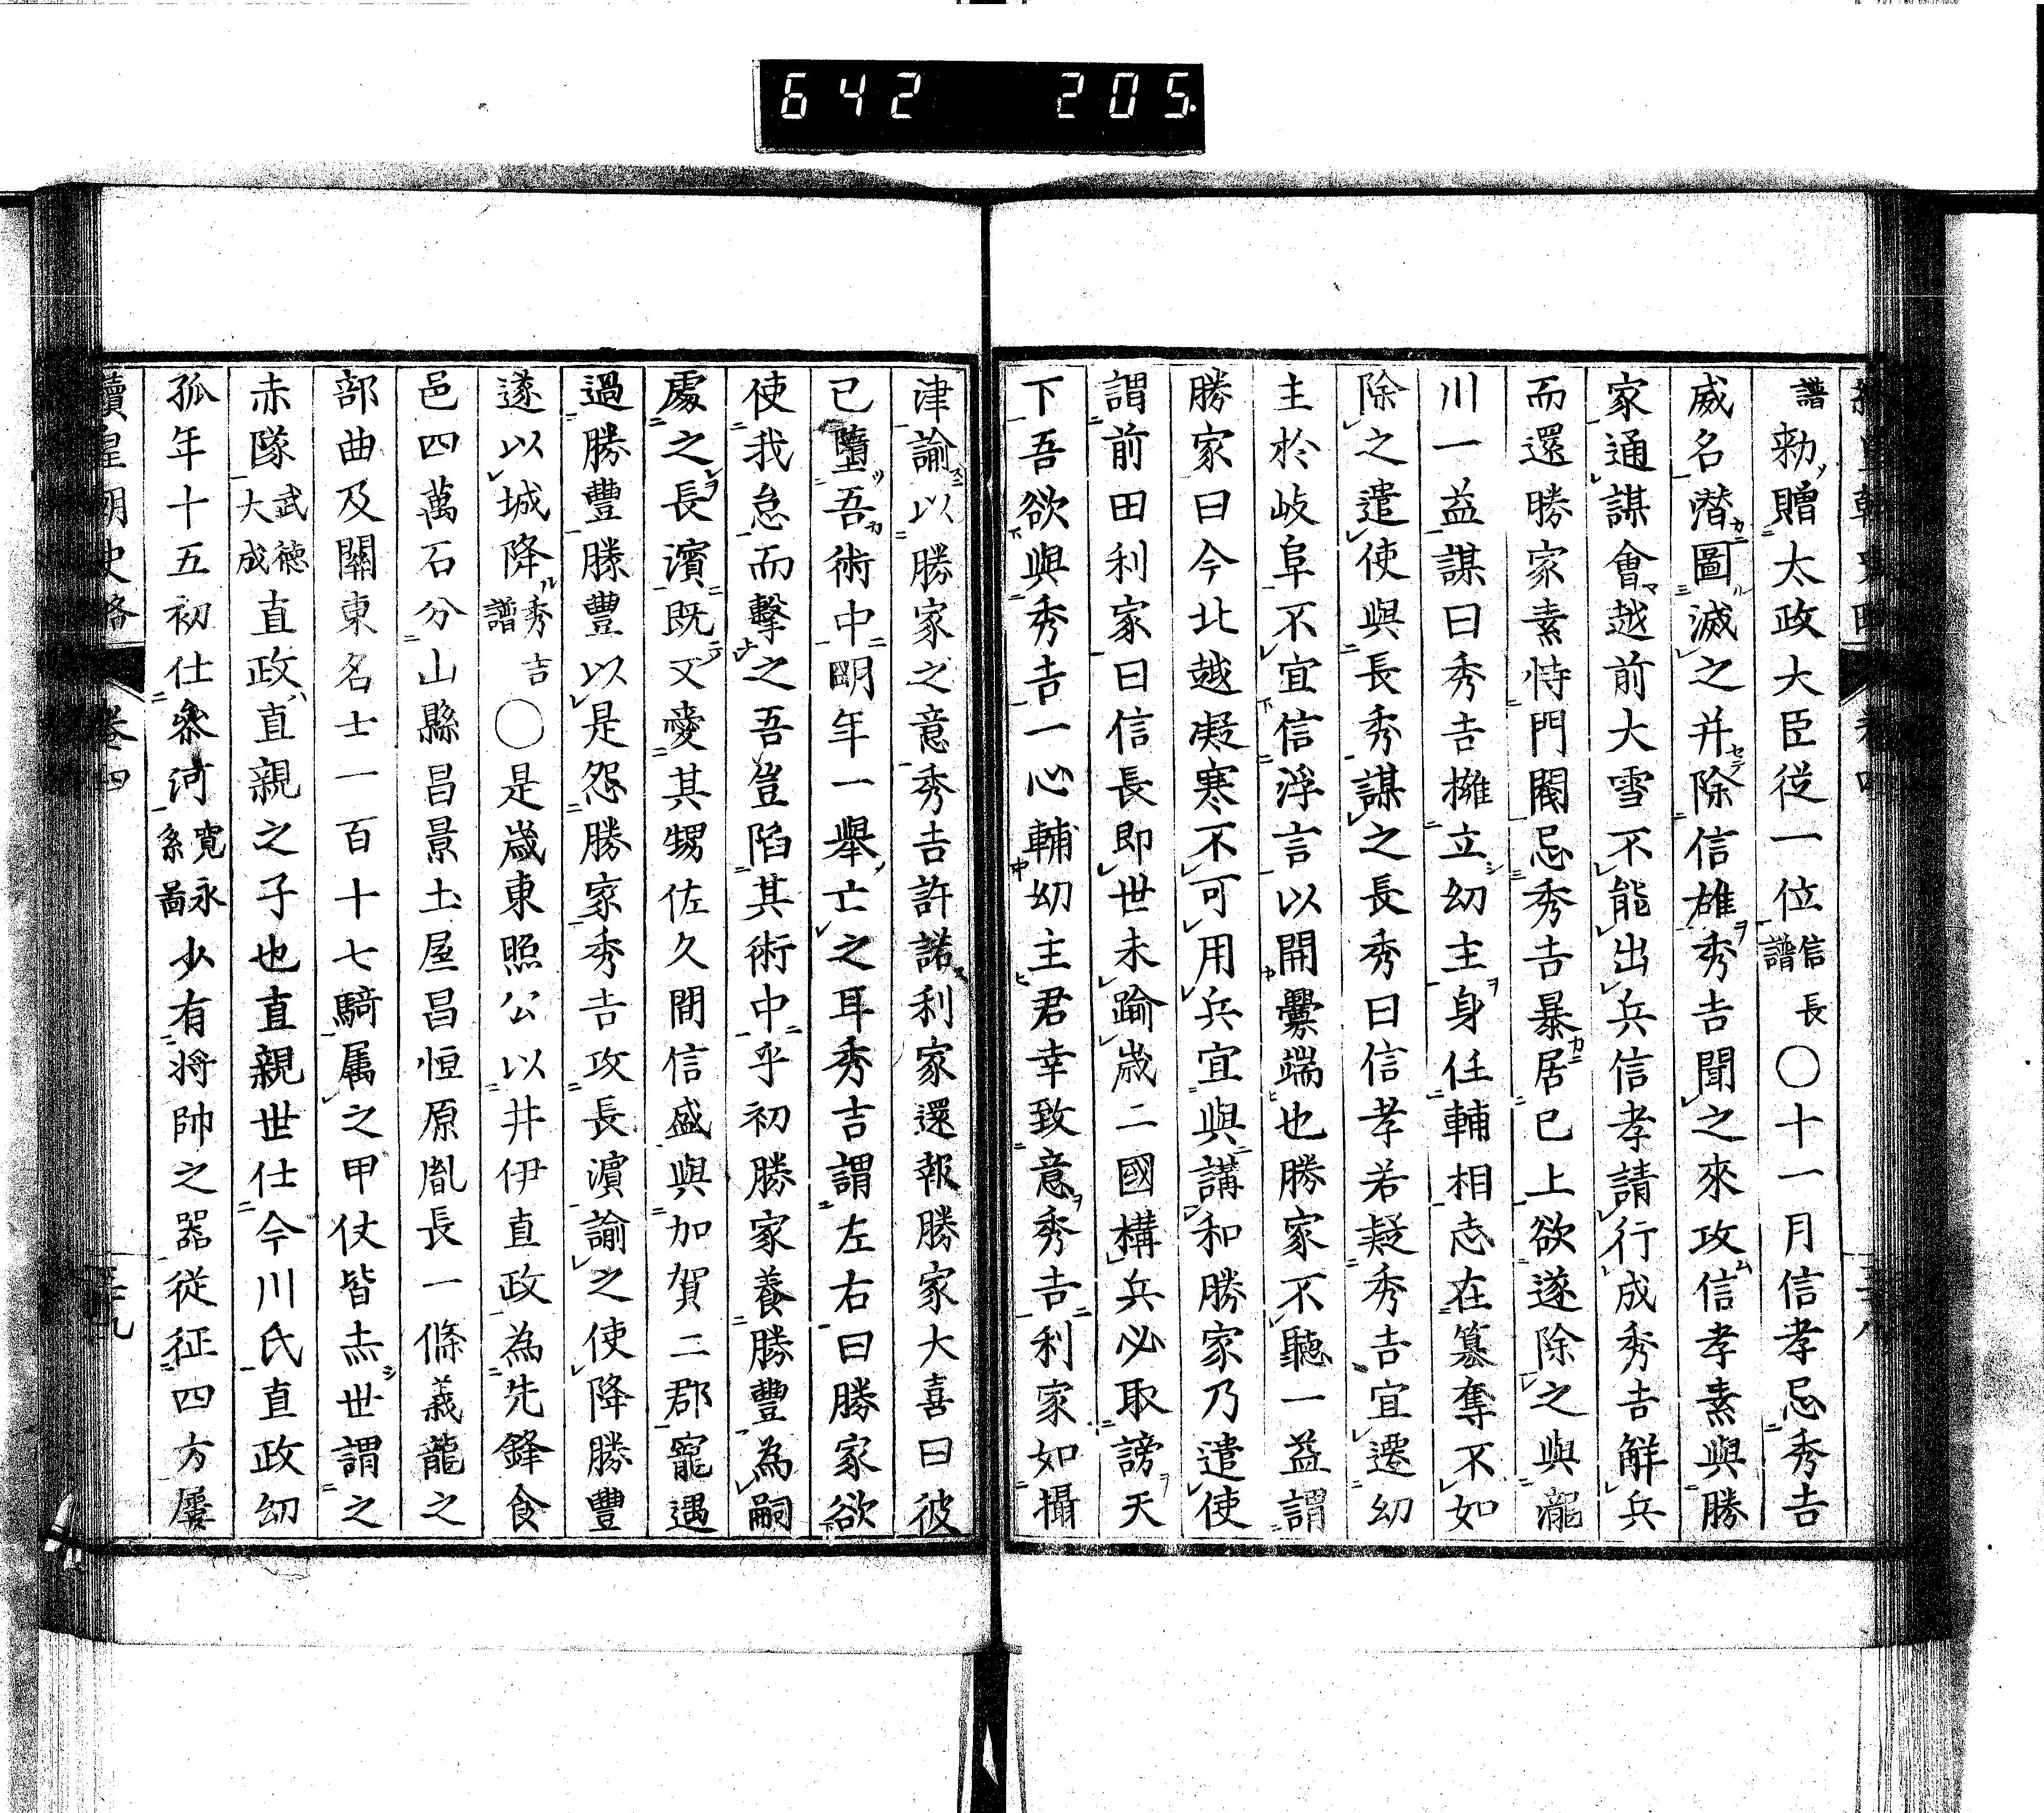 642 205.
譜勅贈太政大臣從一位信長譜〇十一月信孝忌秀吉
威名潛圖滅之并除信雄秀吉聞之來攻信孝素與勝
家通謀會越前大雪不能出兵信孝請行成秀吉解兵
而還勝家素恃門閥忌秀吉暴居己上欲遂除之與瀧
川一益謀曰秀吉擁立幼主身任輔相志在簒奪不如
除之遣使與長秀謀之長秀曰信孝若疑秀吉宜遷幼
主於岐阜不宜信浮言以開釁端也勝家不聽一益謂
勝家曰今北越凝寒不可用兵宜與講和勝家乃遣使
謂前田利家曰信長即世未踰歲二國構兵必取謗天
下吾欲與秀吉一心輔幼主君幸致意秀吉利家如攝
津諭以勝家之意秀吉許諾利家還報勝家大喜曰彼
已墮吾術中明年一舉亡之耳秀吉謂左右曰勝家欲
使我怠而擊之吾豈陷其術中乎初勝家養勝豐為嗣
處之長濱既又愛其甥佐久間信盛與加賀二郡寵遇
過勝豐勝豐以是怨勝家秀吉攻長濱諭之使降勝豐
遂以城降秀吉譜〇是歲東照公以井伊直政為先鋒食
邑四萬石分山縣昌景土屋昌恒原胤長一條義龍之
部曲及關東名士一百十七騎属之甲仗皆赤世謂之
赤隊武德大成直政直親之子也直親世仕今川氏直政幼
孤年十五初仕參河寬永系圖少有將帥之器從征四方屢
續皇朝史略 卷四 三十九